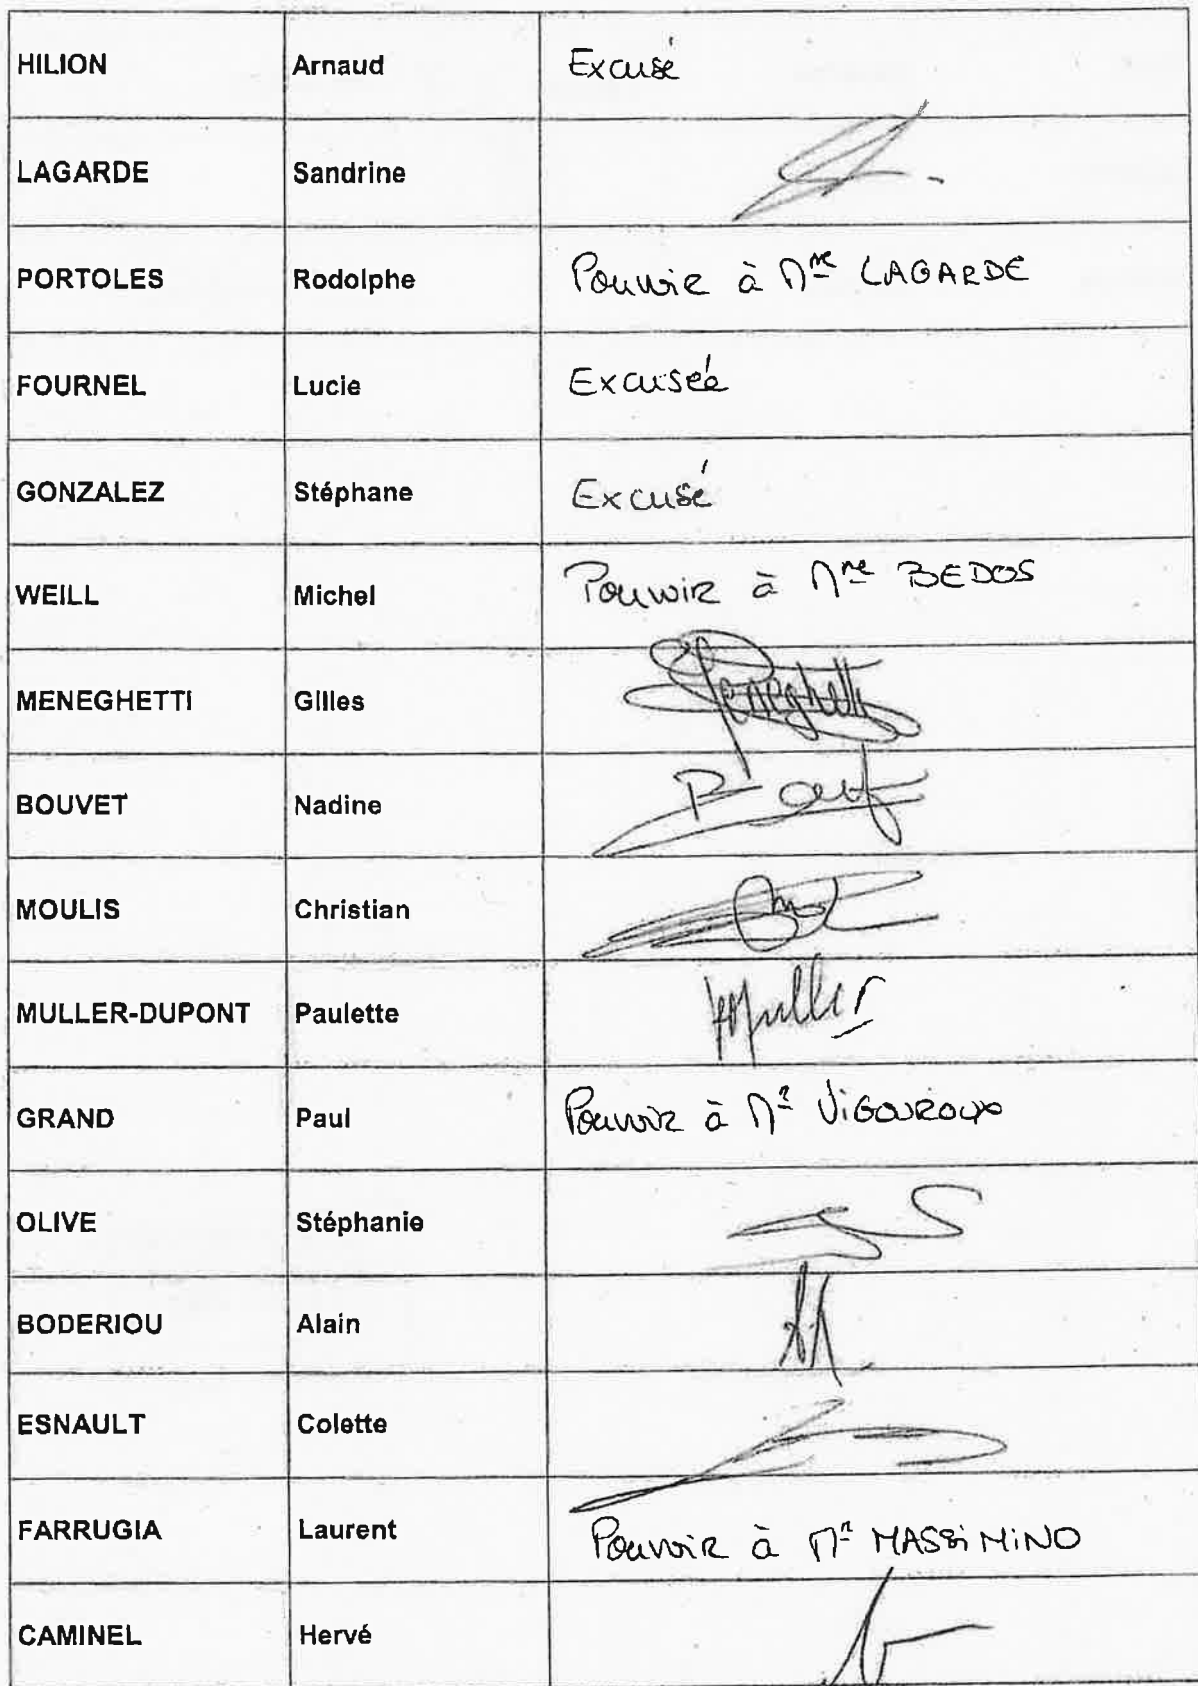 HILION Arnaud Excusé
LAGARDE Sandrine
PORTOLES Rodolphe Pouvoir à Mme LAGARDE
FOURNEL Lucie Excusée
GONZALEZ Stéphane Excusé
WEILL Michel Pouvoir à Mme BEDOS
MENEGHETTI Gilles Meneghetti
BOUVET Nadine
MOULIS Christian
MULLER-DUPONT Paulette Muller
GRAND Paul Pouvoir à Mr VIGOUROUX
OLIVE Stéphanie
BODERIOU Alain
ESNAULT Colette
FARRUGIA Laurent Pouvoir à Mr MASSIMINO
CAMINEL Hervé